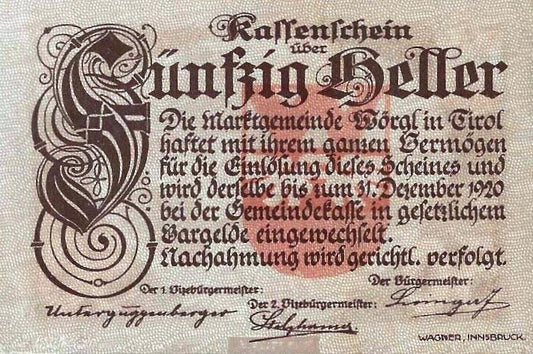 Kassenschein
über
Fünfzig Heller
Die Marktgemeinde Wörgl in Tirol
haftet mit ihrem ganzen Vermögen
für die Einlösung dieses Scheines und
wird derselbe bis zum 31. Dezember 1920
bei der Gemeindekasse in gesetzlichem
Bargelde eingewechselt.
Nachahmung wird gerichtl. verfolgt.
Der 1. Vizebürgermeister:
Der 2. Vizebürgermeister:
Der Bürgermeister:
Unterguggenberger
WAGNER, INNSBRUCK.